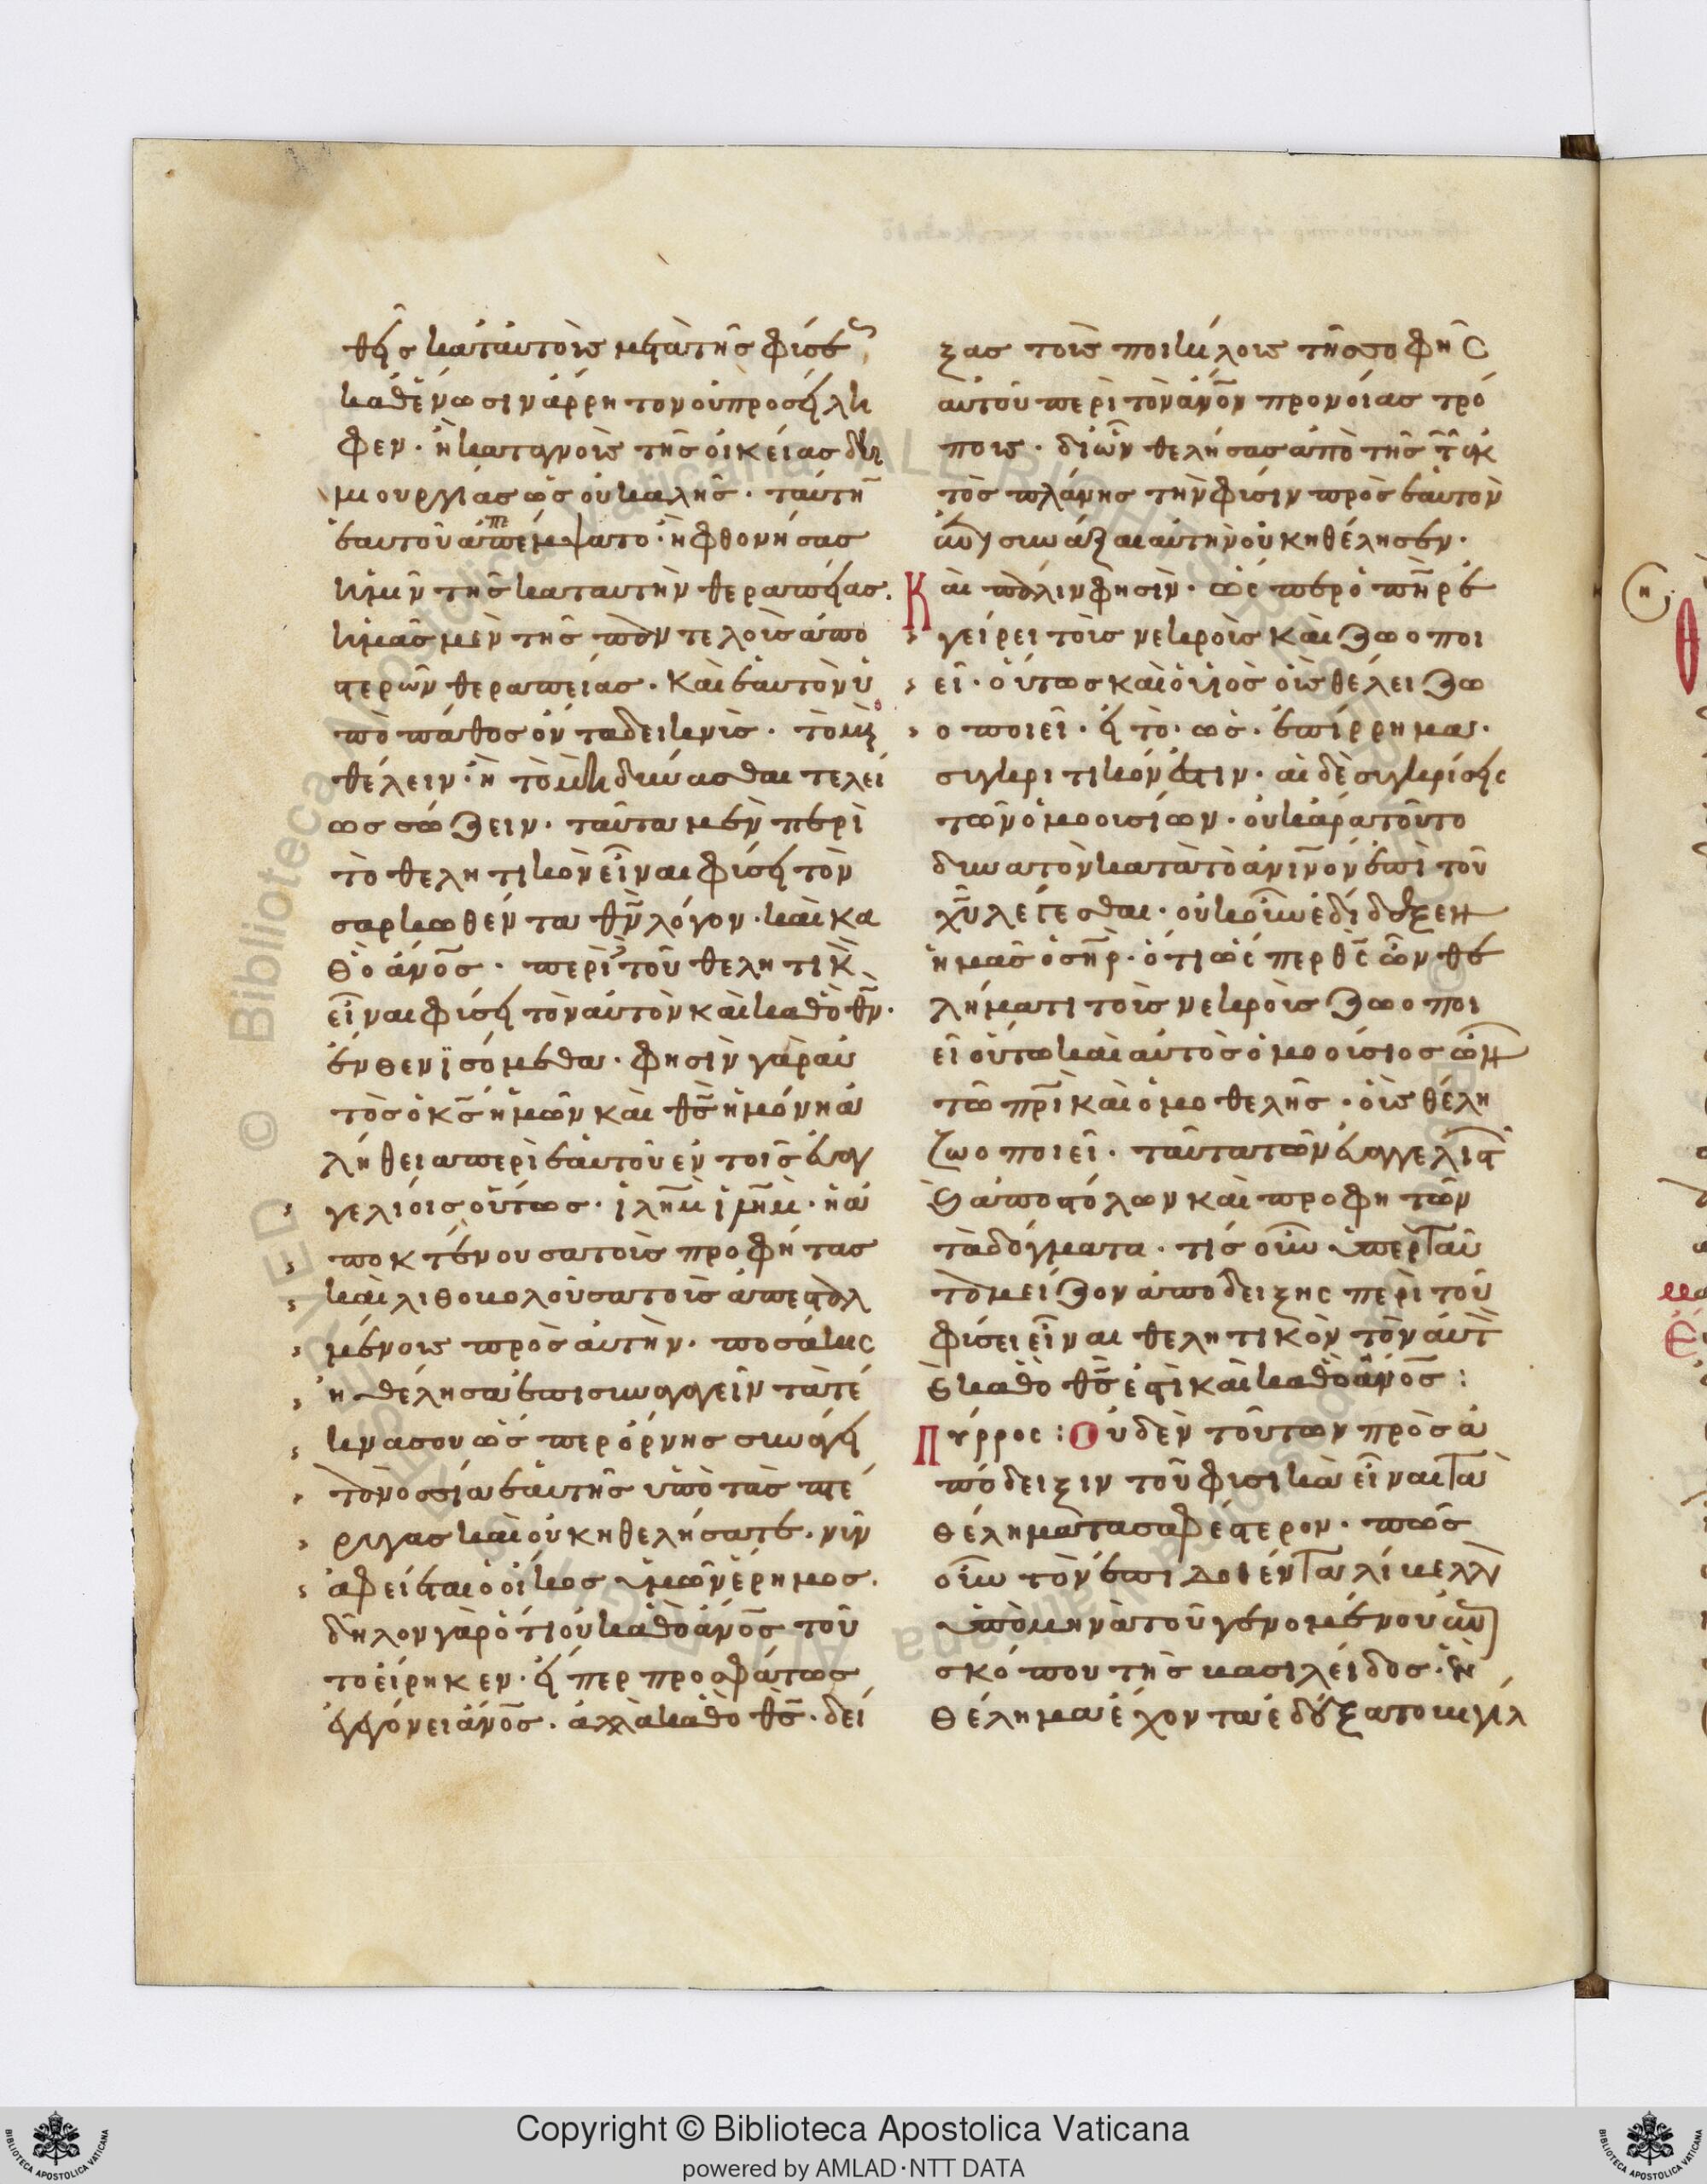 θεὶς κατ' αὐτοὺς μετὰ τῆς φύσεως
καθ' ἕνωσιν ἄρρητον οὐ προσείλη
φεν· ἢ καταγνοὺς τῆς οἰκείας δη
μιουργίας ὡς οὐ καλῆς· ταύτην
ἑαυτοῦ ἀπεπέμψατο· ἢ φθονήσας
ἡμῖν τῆς κατ αυτὴν θεραπείας.
ἡμᾶς μὲν τῆς παντελοῦς ἀπο
στερῶν θεραπείας· καὶ ἑαυτὸν ὑ
πὸ πάθος ὄντα δεικνὺς· τὸ μὴ
θέλειν· ἢ τὸ μὴ δύνασθαι τελεί
ως σώζειν· ταῦτα μὲν περὶ
τὸ θελητικὸν εἶναι φύσει τὸν
σαρκωθέντα θν̄ λόγον· καὶ κα
θὸ ἄνος̄· περὶ τοῦ θελητικὸν
εἶναι φύσει τὸν αὐτὸν καὶ καθὸ θν̄·
ἐντεῦθεν εἰσόμεθα· φησὶν γὰρ αὐ
τὸς ὁ κς̄ ἡμῶν καὶ θς̄ ἡ μόνη ἀ
λήθεια περὶ ἑαυτοῦ ἐν τοῖς εὐαγ
γελίοις οὕτως· ἰλῆμ ἰλῆμ· ἡ ἀ
ποκτένουσα τοὺς προφήτας
καὶ λιθοβολοῦσα τοὺς ἀπεσταλ
μένους πρὸς αὐτὴν· ποσάκις
ἠθέλησα ἐπισυναγαγεῖν τὰ τέ
κνα σου ὡς περ ὄρνης συνάγει
τὰ νοσσία ἑαυτῆς ὑπὸ τὰς πτέ
ρυγας καὶ οὐκ ἠθελήσατε· νῦν
ἀφείεται ὁ οἶκος ὑμῶν ἔρημος.
δῆλον γὰρ ὅτι οὐ καθὸ ἄνος̄ τοῦ
το εἴρηκεν· εἴπερ προσφάτως
ἐγεγόνει ἄνος̄· ἀλλὰ καθὸ θς̄· δεί
ξας τοὺς ποικίλους τῆς σοφῆς
αὐτοῦ περὶ τὸν ἄνον̄ προνοίας τρό
πους· δι ὧν θελήσας ἀπὸ τῆς τῶν ἐκ
τὸς πλάνης τὴν φύσιν πρὸς ἑαυτὸν
συνάξαι αὐτὴν οὐκ ἠθέλησεν·
Καὶ πάλιν φησὶν· ὡς περ ὁ πὴρ ἐ
γείρει τοὺς νεκροὺς καὶ ζωοποι
εῖ· οὕτως καὶ ὁ υἱὸς οὓς θέλει ζω
οποιεῖ· εἰ τὸ· ὡς· ἐπίρρημα·
συγκριτικόν ἐστιν· αἱ δὲ συγκρίσεις
τῶν ὁμοουσίων· οὐκ ἄρα τοῦτο
δυνατὸν κατὰ τὸ ἀνινον̄ ἐπὶ τοῦ
χῡ λέγεσθαι· οὐκοῦν ἐδίδαξεν
ἡμᾶς ὁ σὴρ· ὅτι ὡς περ θς̄ ὢν θε
λήματι τοὺς νεκροὺς ζωοποι
εῖ οὕτω καὶ αὐτὸς ὁμοούσιος ὢν
τῶ πρὶ καὶ ὁμοθελὴς· οὓς θέλη
ζωοποιεῖ· ταῦτα τῶν εὐαγγελιστῶν
καὶ ἀποστόλων καὶ προφητῶν
τὰ δόγματα· τίς οὖν ὑπὲρ ταῦ
τὸ μείζον ἀποδείξης περὶ τοῦ
φύσει εἶναι θελητικὸν τὸν αὐτὸν
καὶ καθὸ θς̄ ἐστὶ καὶ καθὸ ἄνος̄:
Πύρρος: Οὐδὲν τούτων πρὸς ἀ
πόδειξιν τοῦ φυσικὰ εἶναι τὰ
θελήματα σαφέστερον· πῶς
οὖν τὸν ἐπιδοθέντα λίβελλον
ὑπὸ μηνᾶ τοῦ γενομένου ἐπι
σκόπου τῆς βασιλείδος· ἓν
θέλημα ἔχοντα ἐδέξατο βιγίλ